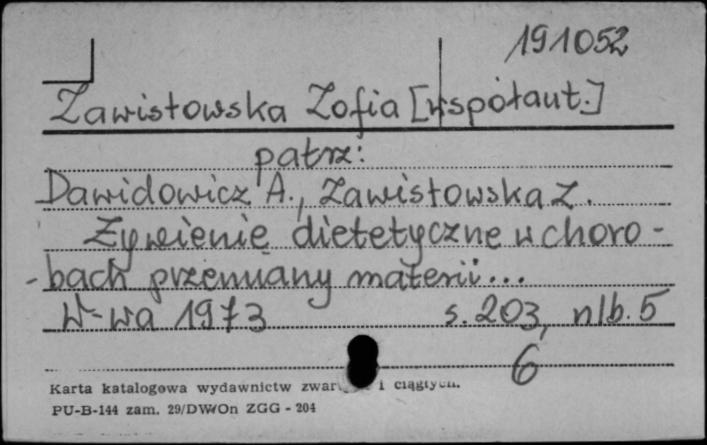 191052
Zawistowska Zofia [współaut.]
patrz:
Dawidowicz A., Zawistowska Z.
Żywienie dietetyczne w choro-
-bach przemiany materii...
W-wa 1973 s. 203, nlb. 5
6
Karta katalogowa wydawnictw i ciągłych.
PU-B-144 zam. 29/DW/On ZGG - 204